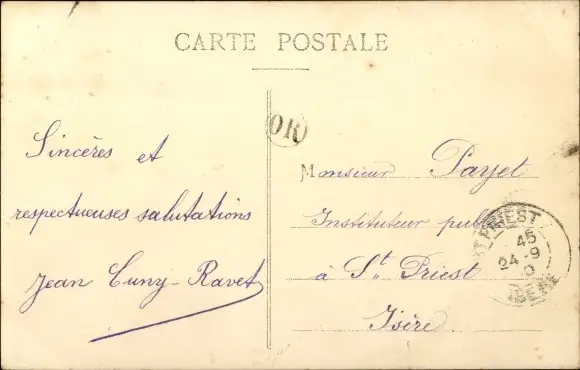 CARTE POSTALE
Sincères et
respectueuses salutations
Jean Cuny-Ravet
OR
Monsieur Payet
Instituteur publ
à St. Priest
Isère
ST PRIEST
45
24-9
ISÈRE